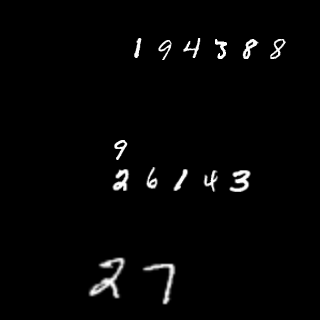 1 9 4 3 8 8
9
2 6 1 4 3
2 7